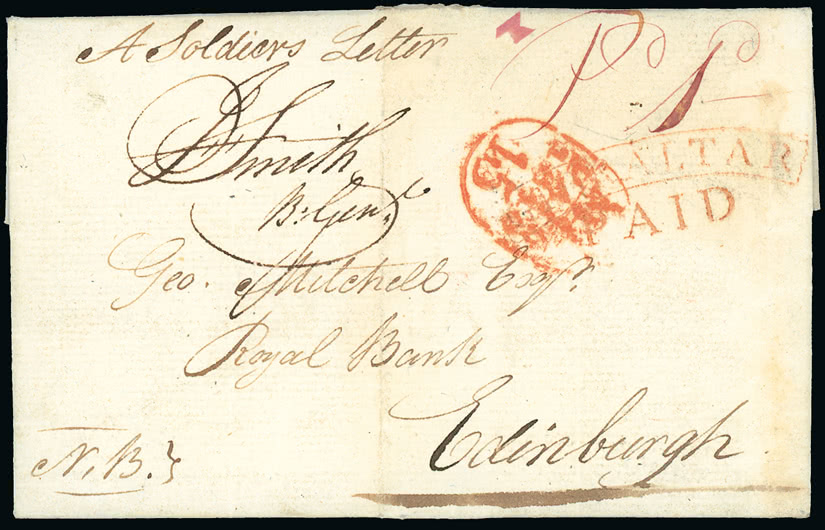 A Soldiers Letter
Smith
B: Genl.
ALTAR
PAID
Geo. Mitchell Esqr.
Royal Bank
Edinburgh
N.B.